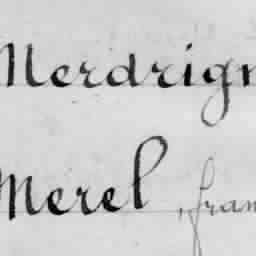 Merdrign
Merel, fran